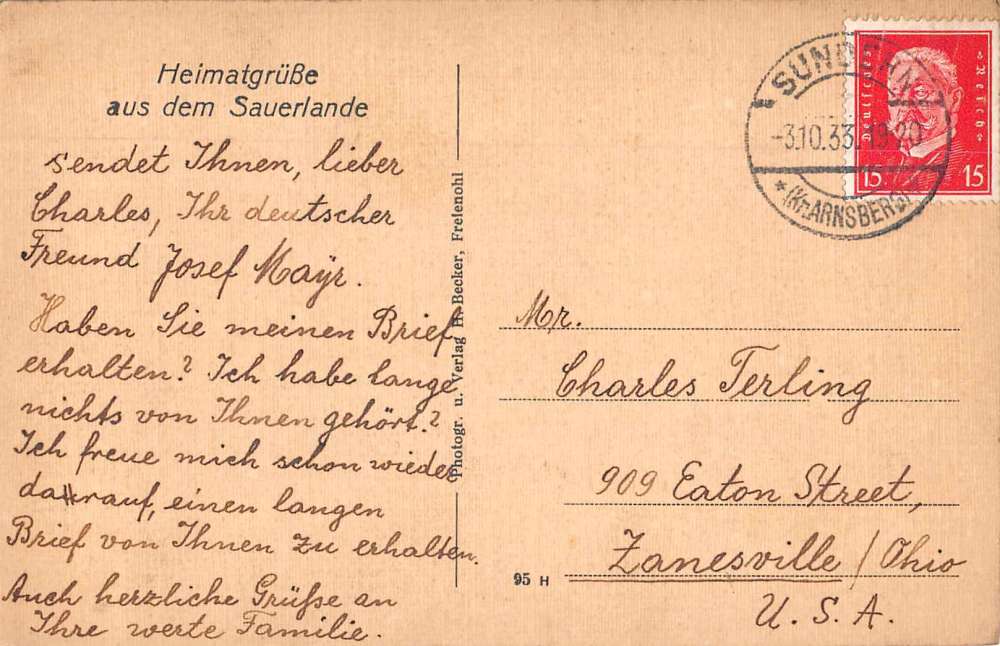 Heimatgrüße
aus dem Sauerlande
sendet Ihnen, lieber
Charles, Ihr deutscher
Freund Josef Mayr.
Haben Sie meinen Brief
erhalten? Ich habe lange
nichts von Ihnen gehört?
Ich freue mich schon wieder
darauf, einen langen
Brief von Ihnen zu erhalten.
Auch herzliche Grüße an
Ihre werte Familie.
Photogr. u. Verlag H. Becker, Freienohl
95 H
SUNDERN
-3.10.33.19-20
*(Kr. ARNSBERG)
Deutsches Reich
15 15
Mr.
Charles Terling
909 Eaton Street,
Zanesville / Ohio
U. S. A.